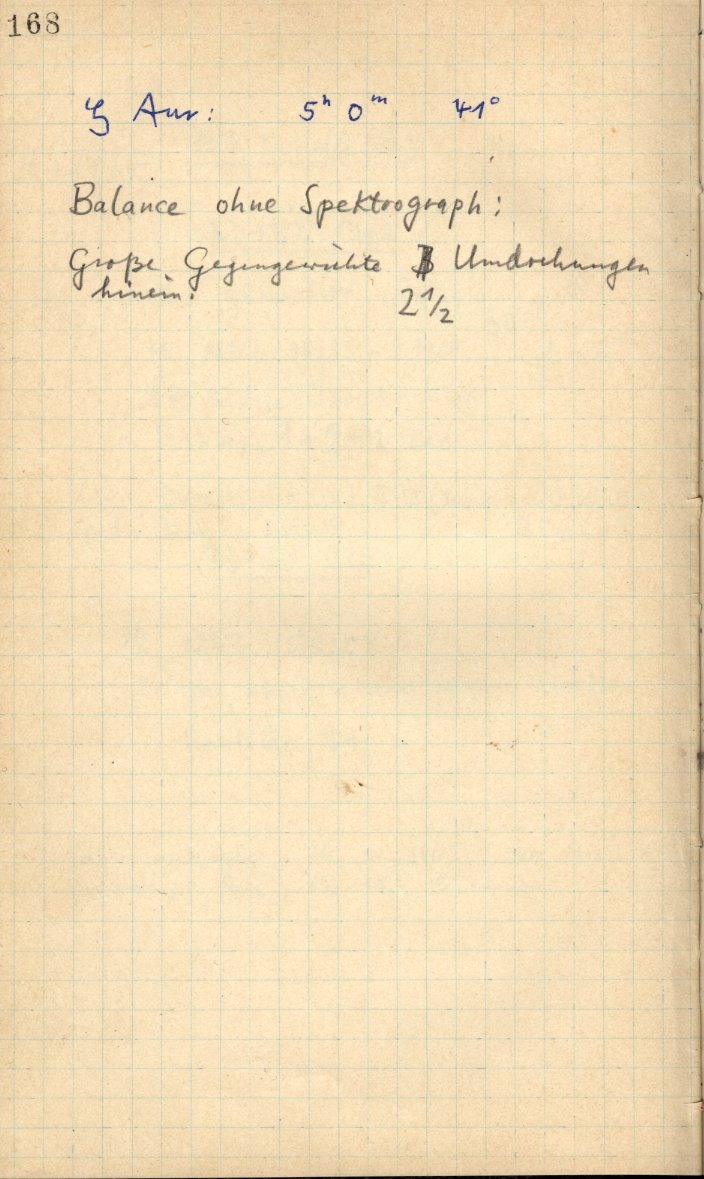 168
ζ Aur: 5ʰ 0ᵐ 41°
Balance ohne Spektrograph:
Große Gegengewichte Umdrehungen
hinein. 2 1/2